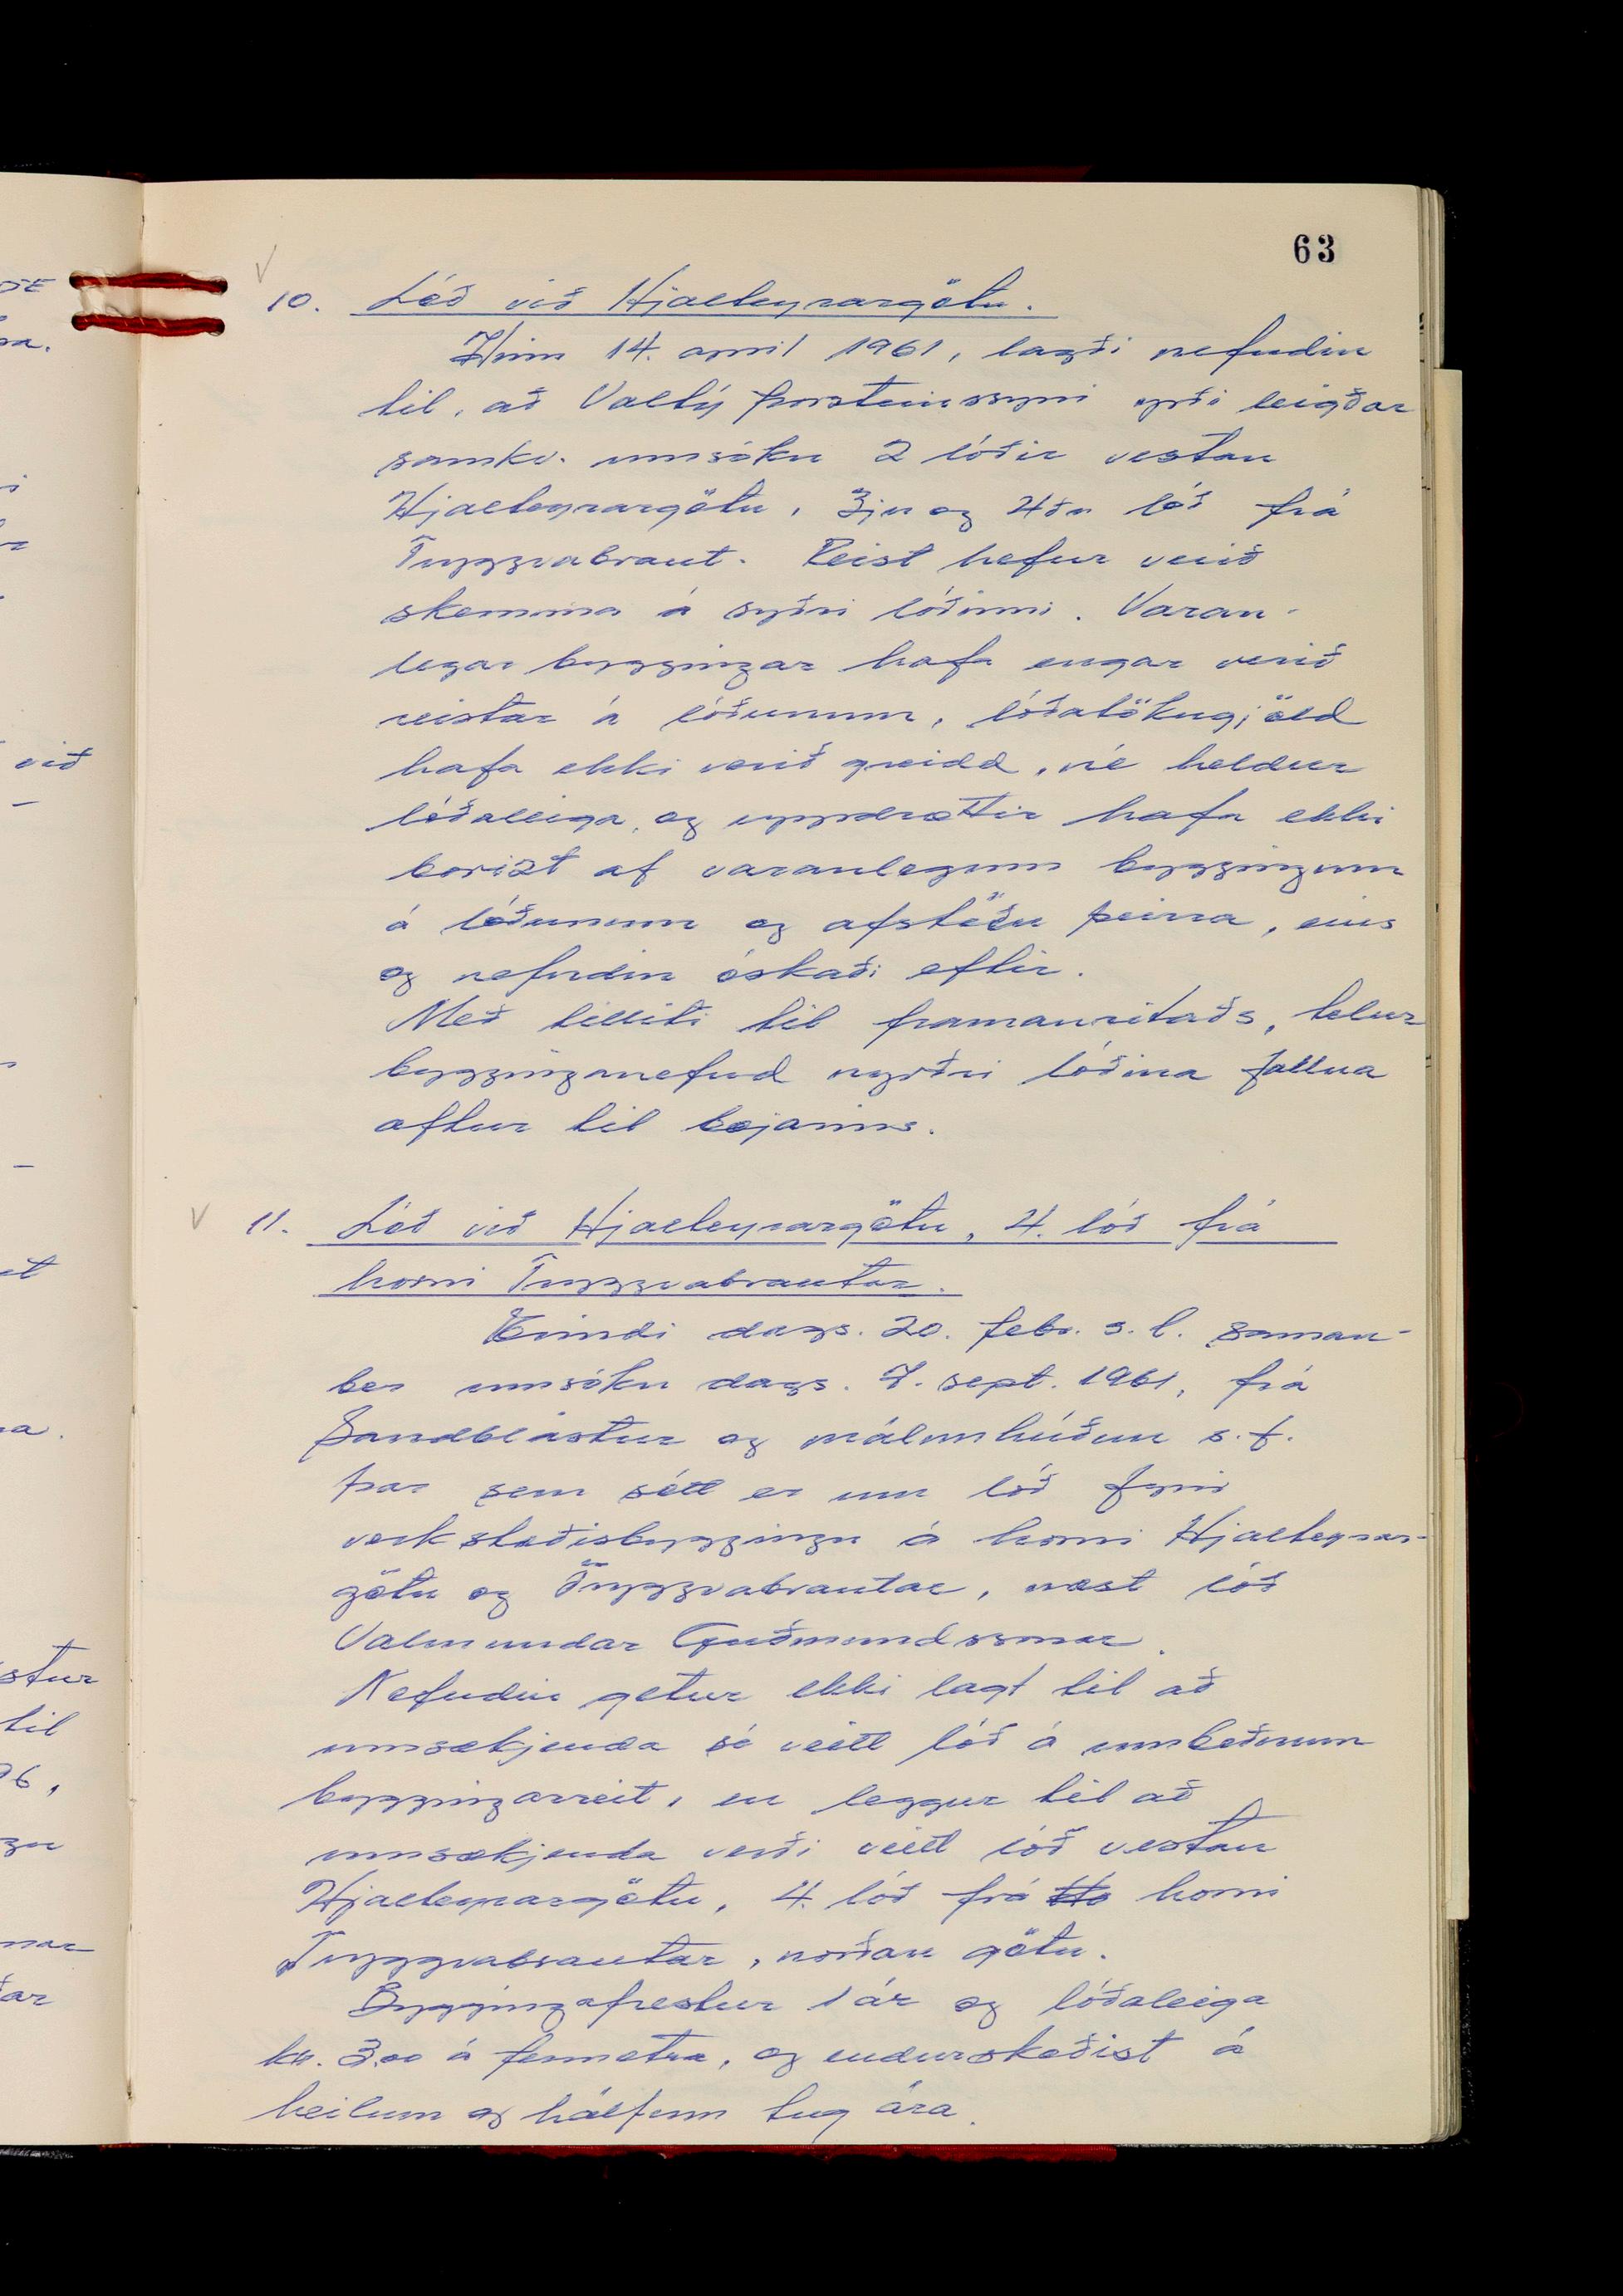 63
10. Lóð við Hjalteyrargötu.
Hinn 14. apríl 1961, lagði nefndin
til, að Valtý Þorsteinssyni yrði leigðar
samkv. umsókn 2 lóðir vestan
Hjalteyrargötu, 3ju og 4ða lóð frá
Tryggvabraut. Reist hefur verið
skemma á syðri lóðinni. Varan-
legar byggingar hafa engar verið
reistar á lóðunum, lóðatökugjöld
hafa ekki verið greidd, né heldur
lóðaleiga, og uppdrættir hafa ekki
borizt af varanlegum byggingum
á lóðunum og afstöðu þeirra, eins
og nefndin óskaði eftir.
Með tilliti til framanritaðs, telur
bygginganefnd nyrðri lóðina fallna
aftur til bæjarins.
11. Lóð við Hjalteyrargötu, 4. lóð frá
horni Tryggvabrautar.
Erindi dags. 20. febr. s.l. saman-
ber umsókn dags. 7. sept. 1961, frá
Sandblástur og málmhúðun s.f.
þar sem sótt er um lóð fyrir
verkstæðisbyggingu á horni Hjalteyrar-
götu og Tryggvabrautar, næst lóð
Valmundar Guðmundssonar.
Nefndin getur ekki lagt til að
umsækjenda sé veitt lóð á umbeðnum
byggingarreit, en leggur til að
umsækjenda verði veitt lóð vestan
Hjalteyrargötu, 4. lóð frá horni
Tryggvabrautar, norðan götu.
Byggingafrestur 1 ár og lóðaleiga
kr. 3.00 á fermetra, og endurskoðist á
heilum og hálfum tug ára.
við
stur
til
96,